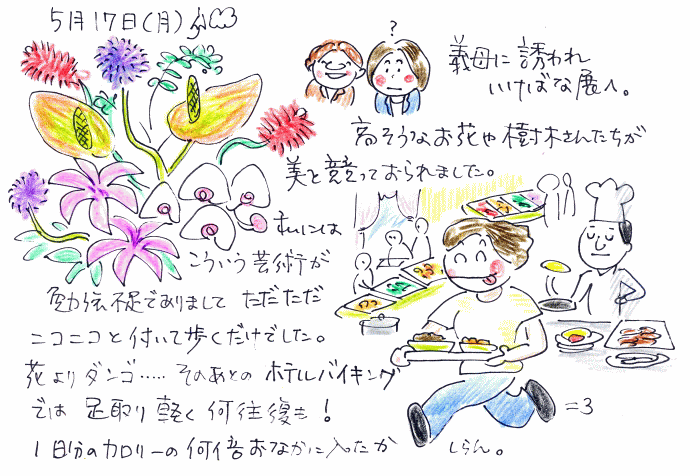 5月17日(月)
?
義母に誘われ
いけばな展へ。
高そうなお花や樹木さんたちが
美と競っておられました。
私には
こういう芸術が
勉強不足でありまして ただただ
ニコニコと付いて歩くだけでした。
花よりダンゴ..... そのあとのホテルバイキング
では 足取り軽く何往復も!
=3
1日分のカロリーの何倍おなかに入ったか しらん。